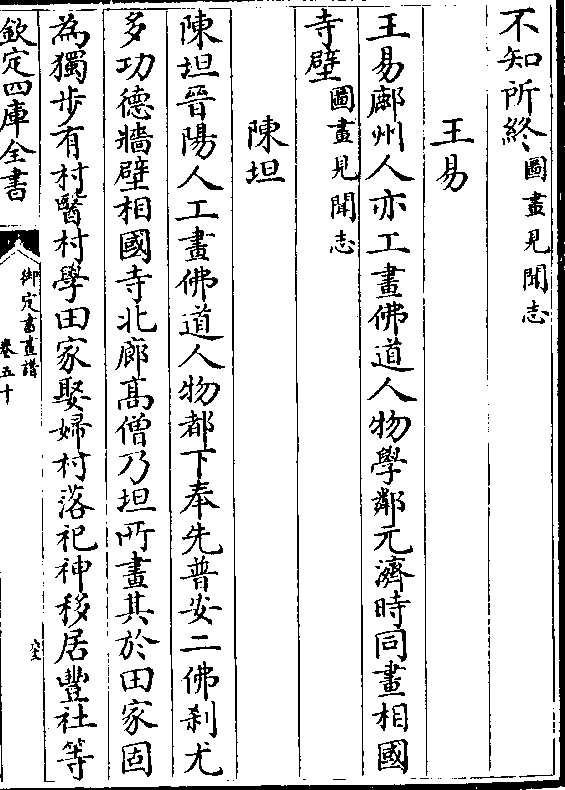 不知所終圖畫見聞志
王易
王易鄜州人亦工畫佛道人物學鄰元濟時同畫相國
寺壁圖畫見聞志
陳坦
陳坦晉陽人工畫佛道人物都下奉先普安二佛刹尤
多功德牆壁相國寺北廊高僧乃坦所畫其於田家固
為獨步有村醫村學田家娶婦村落祀神移居豐社等
欽定四庫全書
御定書畫譜
卷五十